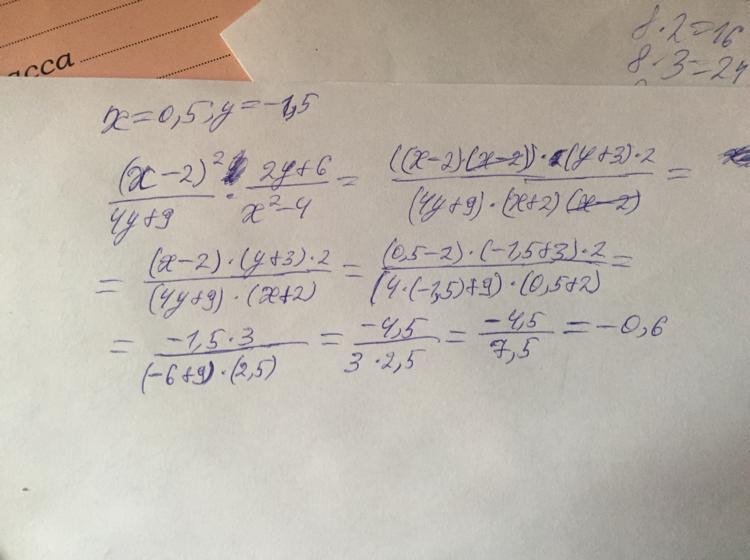 асса
8·2=16
8·3=24
x=0,5; y=-1,5
(x-2)²/(4y+9) · (2y+6)/(x²-4) = ((x-2)·(x-2))·(y+3)·2/((4y+9)·(x+2)(x-2)) =
= (x-2)·(y+3)·2/((4y+9)·(x+2)) = (0,5-2)·(-1,5+3)·2/((4·(-1,5)+9)·(0,5+2)) =
= -1,5·3/((-6+9)·(2,5)) = -4,5/(3·2,5) = -4,5/7,5 = -0,6